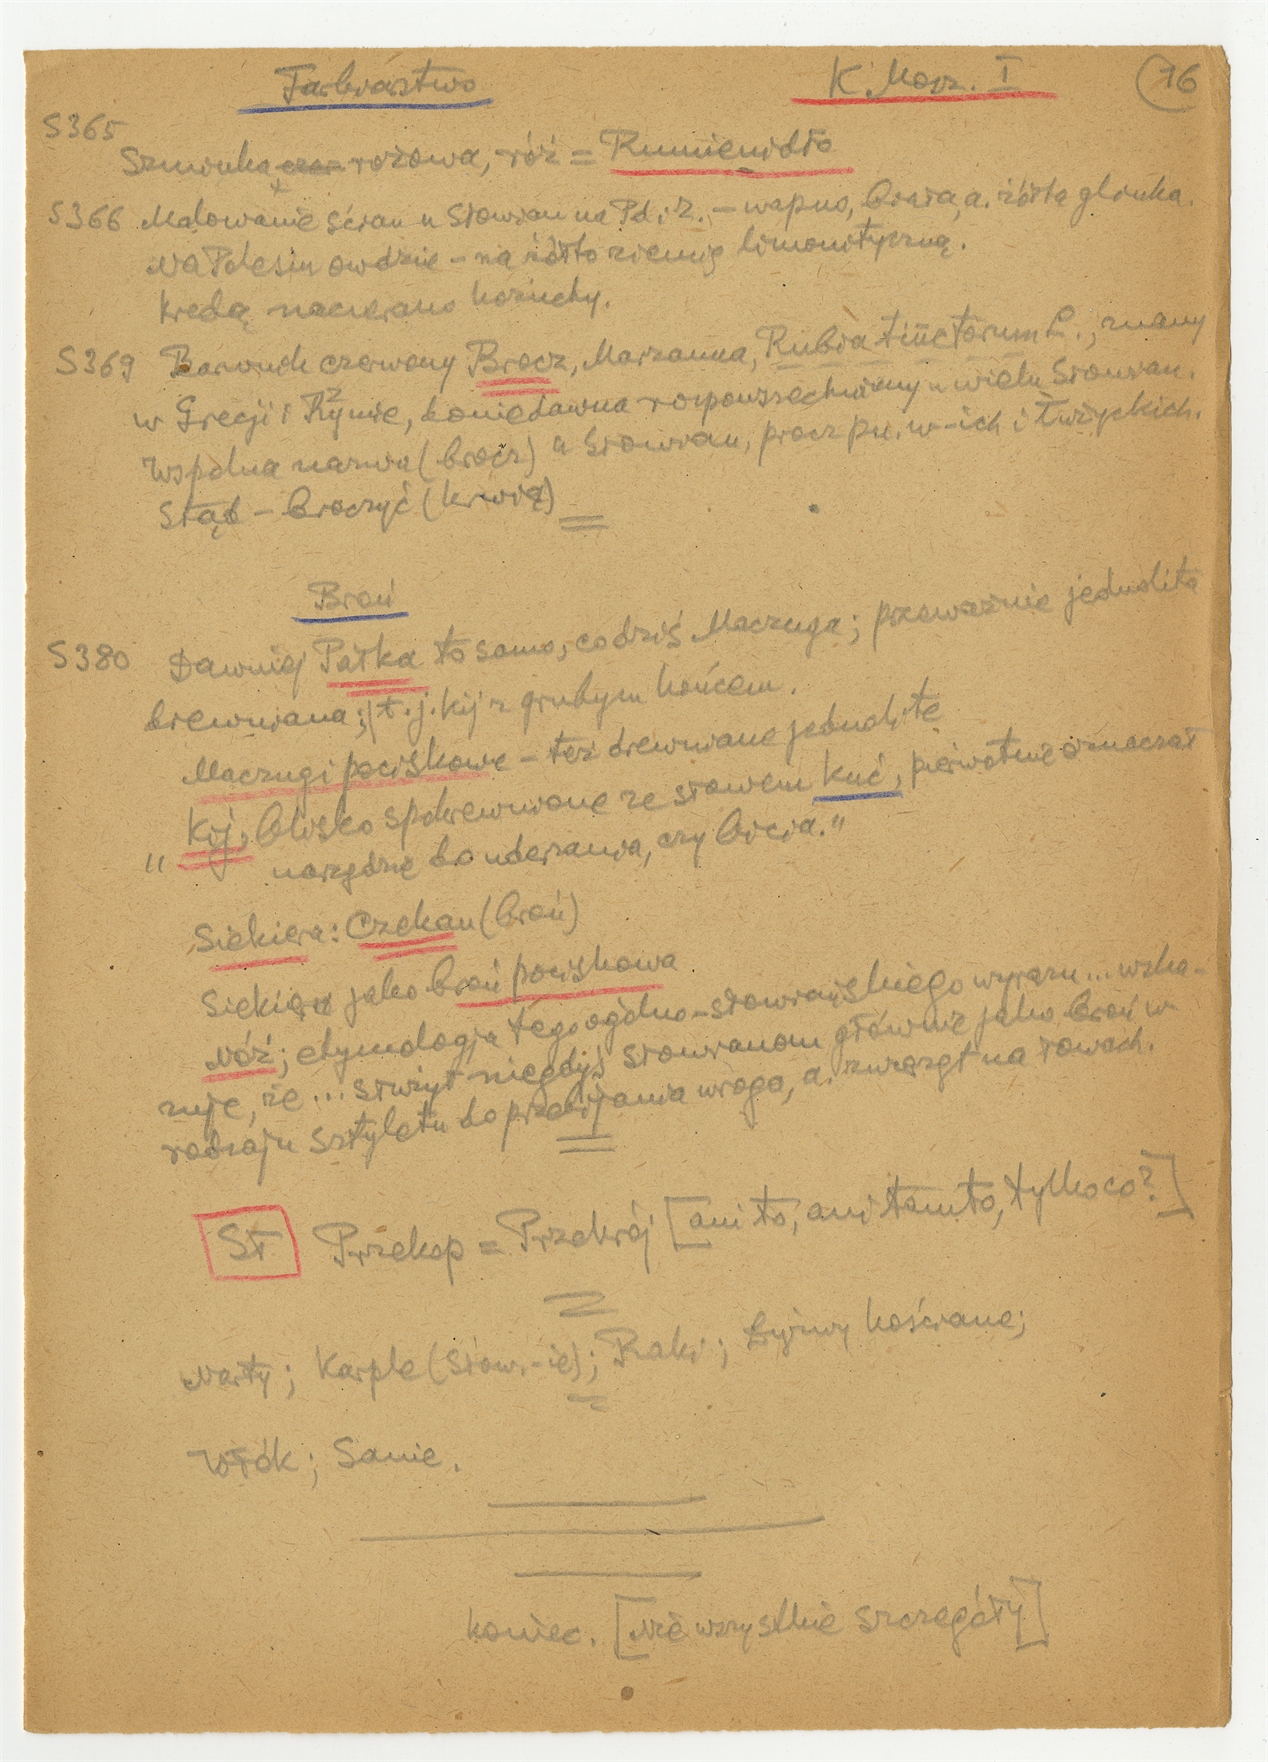 Farbiarstwo K. Mosz. I 16
S365
Szminka różowa, róż = Rumienidło
S366 Malowanie ścian u Słowian na Pd. i Z. – wapno, biała, a. żółta glinka.
Na Polesiu owdzie – na żółto ziemią limonityczną.
Kredą nacierano kożuchy.
S369 Barwnik czerwony Brocz, Marzanna, Rubia tinctorum L., znany
w Grecji i Rzymie, do niedawna rozpowszechniony u wielu Słowian.
Wspólna nazwa (brocz) u Słowian, prócz pn. w-ich i Łużyckich.
Stąd – broczyć (krwią)
Broń
S380 Dawniej Pałka to samo, co dziś Maczuga; przeważnie jednolita
drewniana; t. j. kij z grubym końcem.
Maczugi pociskowe – też drewniane jednolite
„ Kij, blisko spokrewnione ze słowem kuć, pierwotnie oznaczał
narzędzie do uderzania, czy bicia."
Siekiera: Czekan (broń)
Siekiera jako broń pociskowa
Nóż; etymologja tego ogólno-słowiańskiego wyrazu ... wska-
zuje, że ... służył niegdyś Słowianom głównie jako broń w
rodzaju sztyletu do przebijania wroga, a. zwierząt na łowach.
Sł Przekop = Przekrój [ani to, ani tamto, tylko co?]
Narty; Karple (słow.-ie); Raki; Łyżwy kościane;
Włók; Sanie.
koniec. [Nie wszystkie szczegóły]